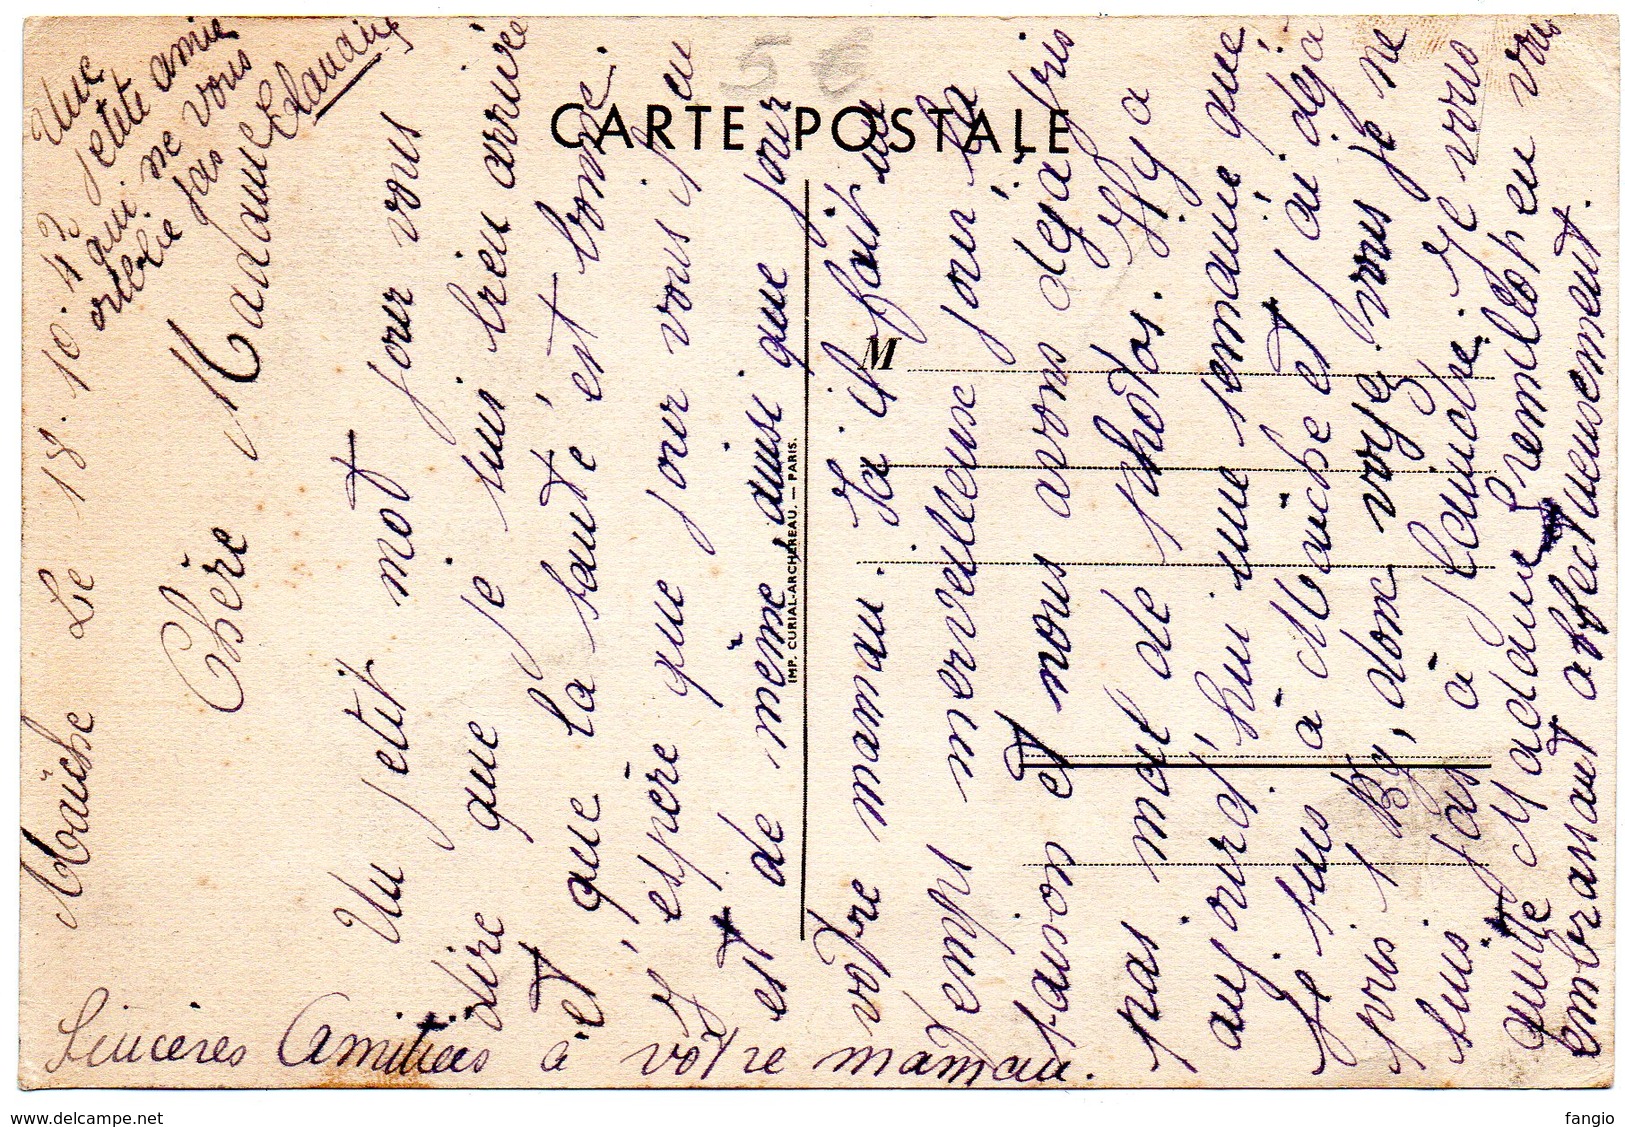 Maîche Le 18. 10. 43
Chère Madame
Un petit mot pour vous
dire que je suis bien arrivée
et que la santé est bonne.
J'espère que pour vous il en
est de même, ainsi que pour
votre maman. Ici il fait un
temps merveilleuse pour la
saison et nous avons déjà pris
pas mal de photos. Il y a
aujourd'hui une semaine que
je suis à Maîche et j'ai déjà
pris 1 Kg, donc voyez vous je ne
suis pas à plaindre. Je vous
quitte Madame Premillon en vous
embrassant affectueusement.
Une
petite amie
qui ne vous
oublie pas
Claudie
Sincères Amitiées à votre maman.
CARTE POSTALE
5 €
M
IMP. CURIAL-ARCHEREAU. — PARIS.
www.delcampe.net
fangio